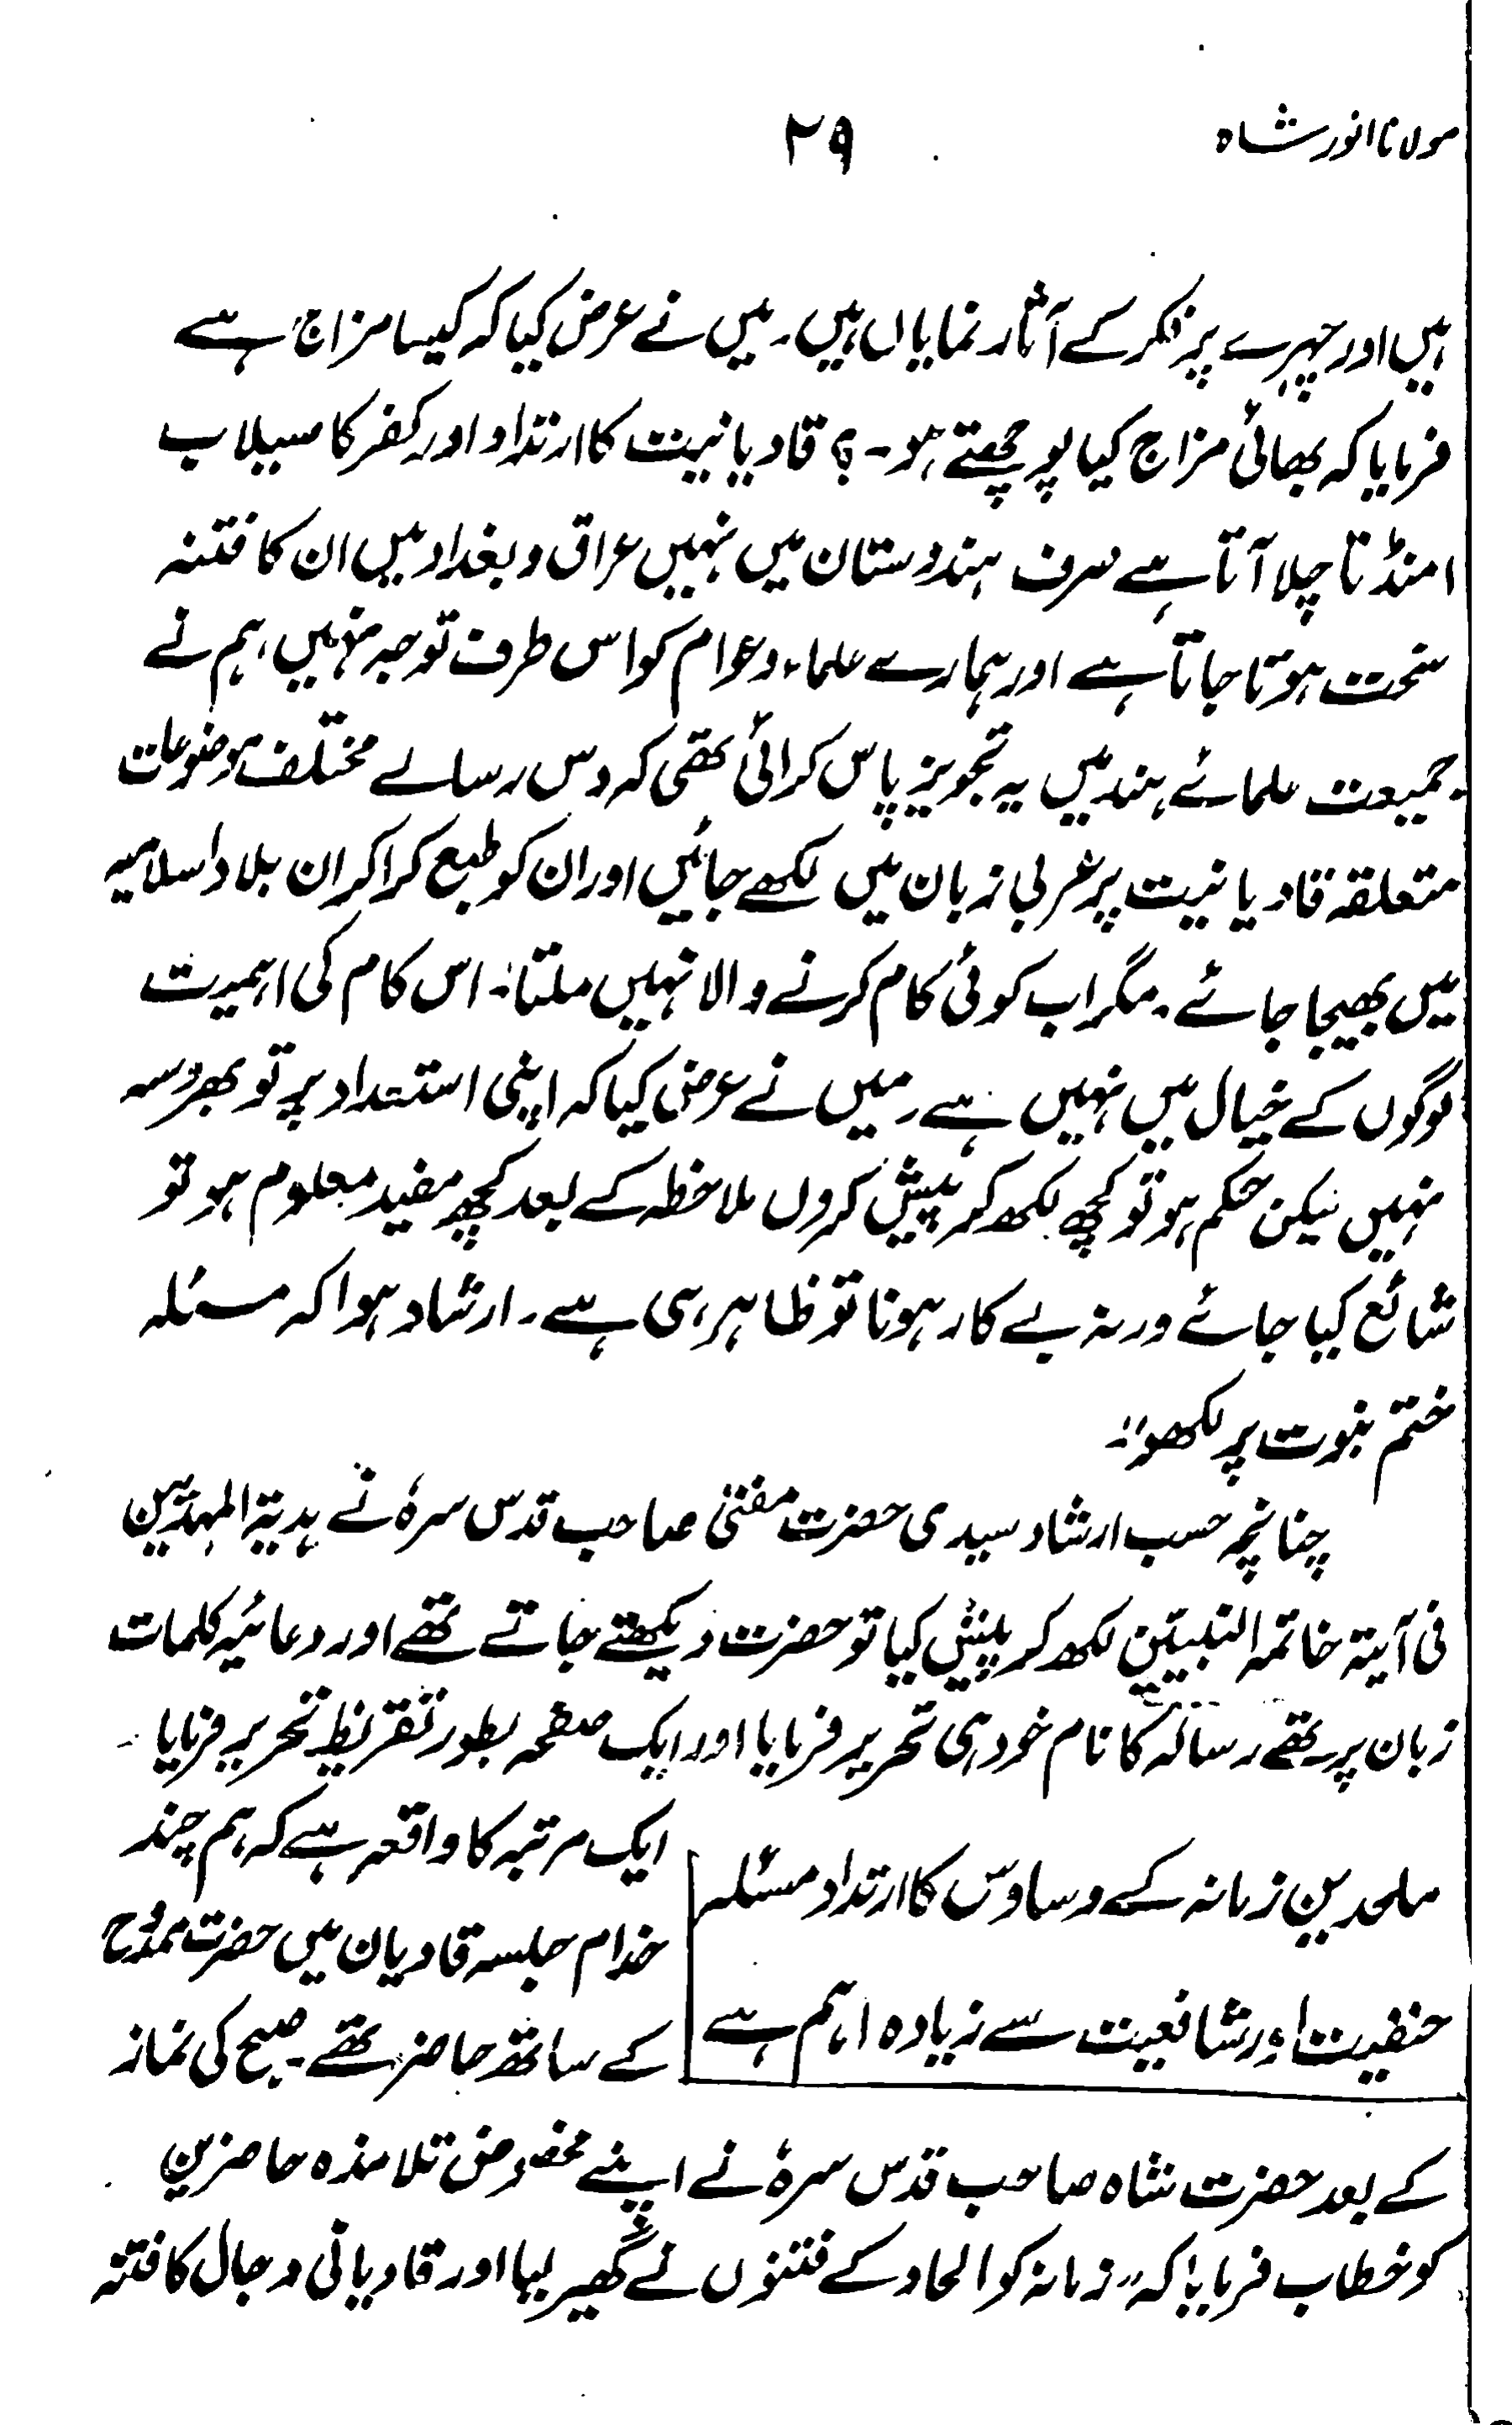 مولانا انور شاہ
۲۹
ہیں اور چہرے پر فکر کے آثار نمایاں ہیں۔ میں نے عرض کیا کہ کیسا مزاج ہے
فرمایا کہ بھائی مزاج کیا پوچھتے ہو۔ ؟ قادیانیت کا ارتداد اور کفر کا سیلاب
امنڈتا چلا آتا ہے صرف ہندوستان میں نہیں عراق و بغداد میں ان کا فتنہ
سخت ہوتا جاتا ہے اور ہمارے علماء وعوام کو اس طرف توجہ نہیں، ہم نے
جمیعت علمائے ہند میں یہ تجویز پاس کرائی تھی کہ دس رسالے مختلف موضوعات
متعلقہ قادیانیت پر عربی زبان میں لکھے جائیں اور ان کو طبع کرا کر ان بلاد اسلامیہ
میں بھیجا جائے۔ مگر اب کوئی کام کرنے والا نہیں ملتا۔ اس کام کی اہمیت
لوگوں کے خیال میں نہیں ہے۔ میں نے عرض کیا کہ اپنی استعداد پر تو بھروسہ
نہیں لیکن حکم ہو تو کچھ لکھ کر پیش کروں ملاحظہ کے بعد کچھ مفید معلوم ہو تو
شائع کیا جائے ورنہ بے کار ہونا تو ظاہر ہی ہے۔ ارشاد ہوا کہ مسئلہ
ختم نبوت پر لکھو"۔
چنانچہ حسب ارشاد سیدی حضرت مفتی صاحب قدس سرہٗ نے ہدیۃ المہدیین
فی آیۃ خاتم النبیین لکھ کر پیش کیا تو حضرت دیکھتے جاتے تھے اور دعائیہ کلمات
زبان پر تھے رسالہ کا نام خود ہی تحریر فرمایا اور ایک صفحہ بطور تقریظ تحریر فرمایا۔
ملحدین زمانہ کے وساوس کا ارتداد مسئلہ
حنفیت اور شافعیت سے زیادہ اہم ہے
ایک مرتبہ کا واقعہ ہے کہ ہم چند
خدام جلسہ قادیان میں حضرت ممدوح
کے ساتھ حاضر تھے۔ صبح کی نماز
کے بعد حضرت شاہ صاحب قدس سرہٗ نے اپنے مخصوص تلامذہ حاضرین
کو خطاب فرمایا کہ "زمانہ کو الحاد کے فتنوں نے گھیر لیا اور قادیانی دجال کا فتنہ